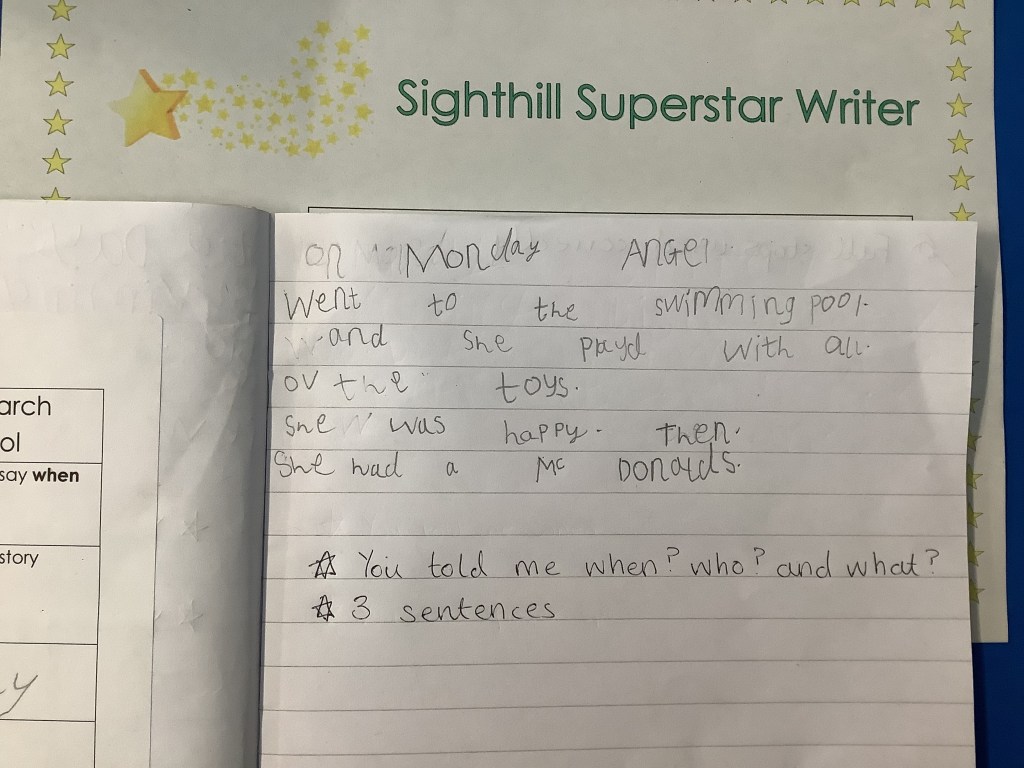 Sighthill Superstar Writer
on Monday Angel.
Went to the swimming pool.
and she playd with all.
ov the toys.
She was happy. Then.
She had a Mc Donalds.
You told me when? who? and what?
3 sentences
arch
ol
say when
story
y